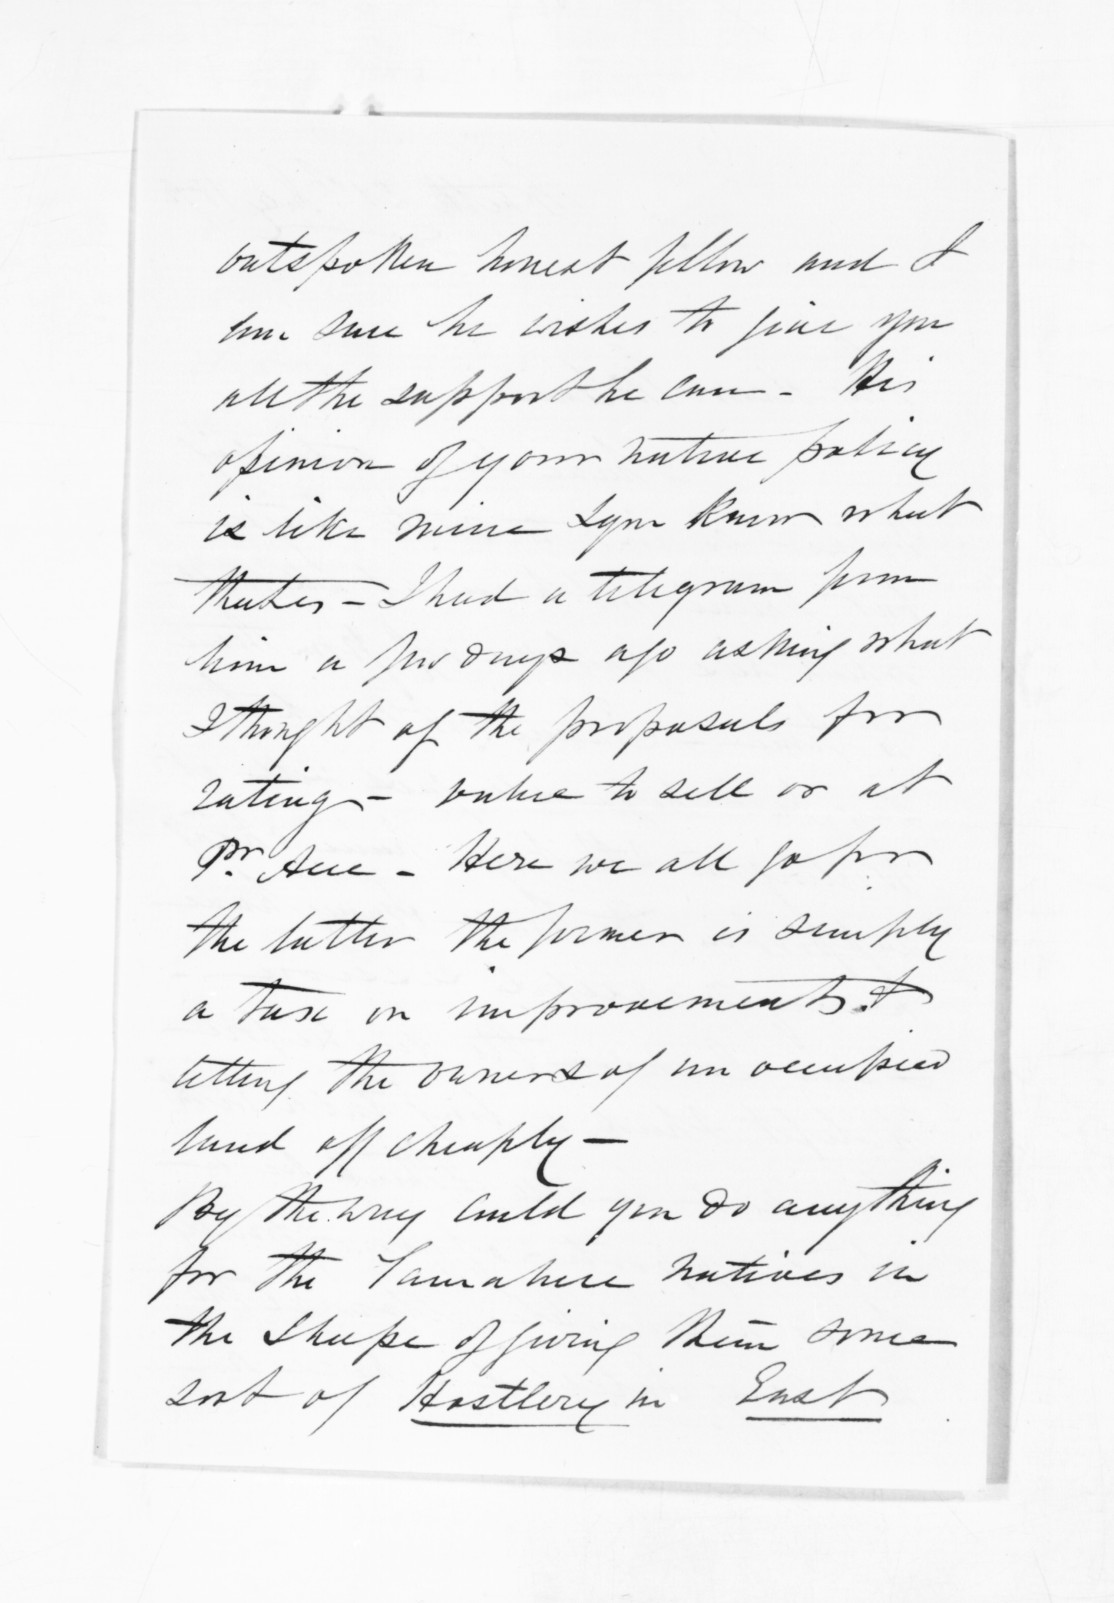 outspoken honest fellow and I
am sure he wishes to give you
all the support he can - His
opinion of your native policy
is like mine & you know what
that is - I had a telegram from
him a few days ago asking what
I thought of the proposals for
rating - value to sell or at
Pr. Acre - Here we all go for
the latter the former is simply
a tax on improvements &
letting the owners of unoccupied
land off cheaply -
By the way could you do anything
for the Tamahere natives in
the shape of giving them some
sort of Hostlery in East